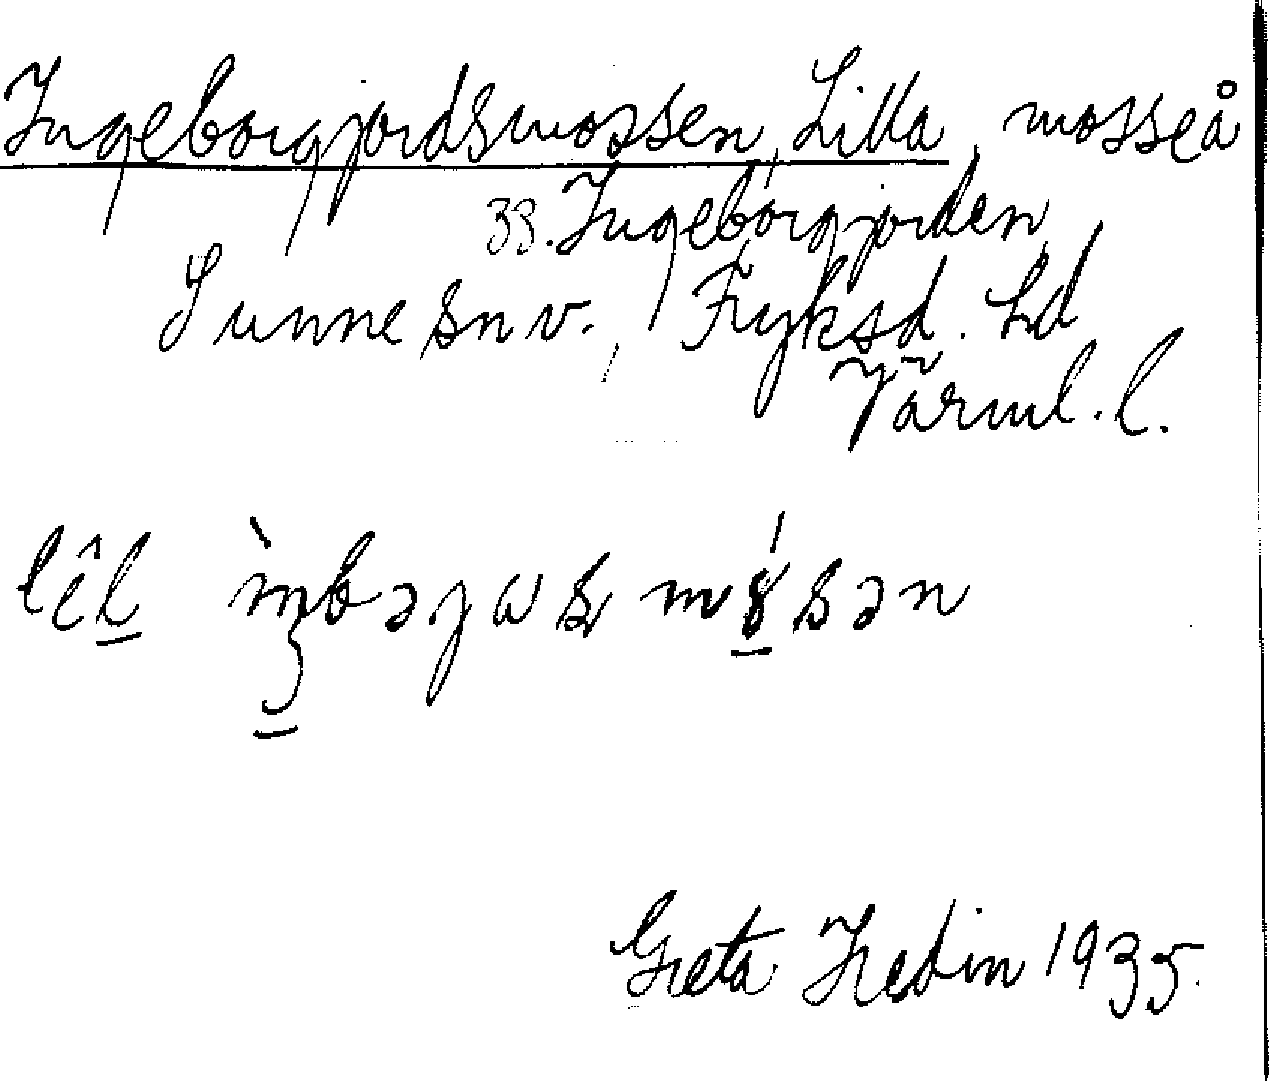 Ingeborgjordsmossen, Lilla, mosse å
33. Ingeborgjorden,
Sunne sn v., Fryksd. hd
Värml. l.
Greta Hedin 1935.